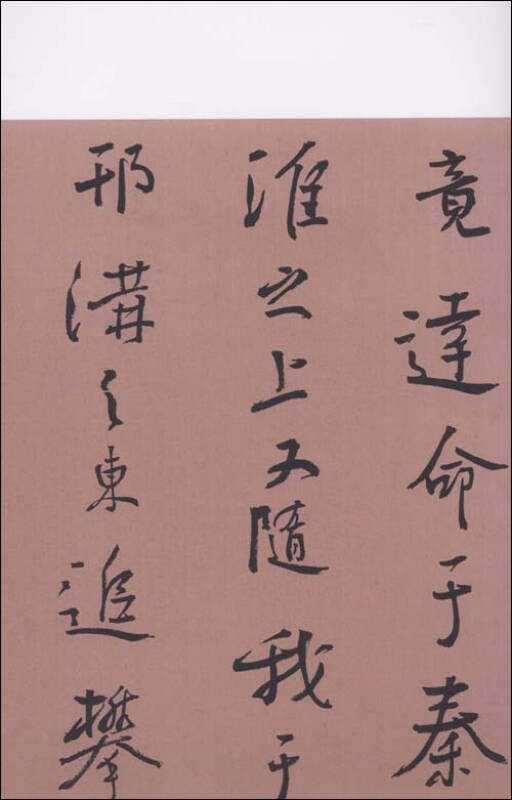 竟達命于秦
淮之上又隨我于
邗溝之東追攀